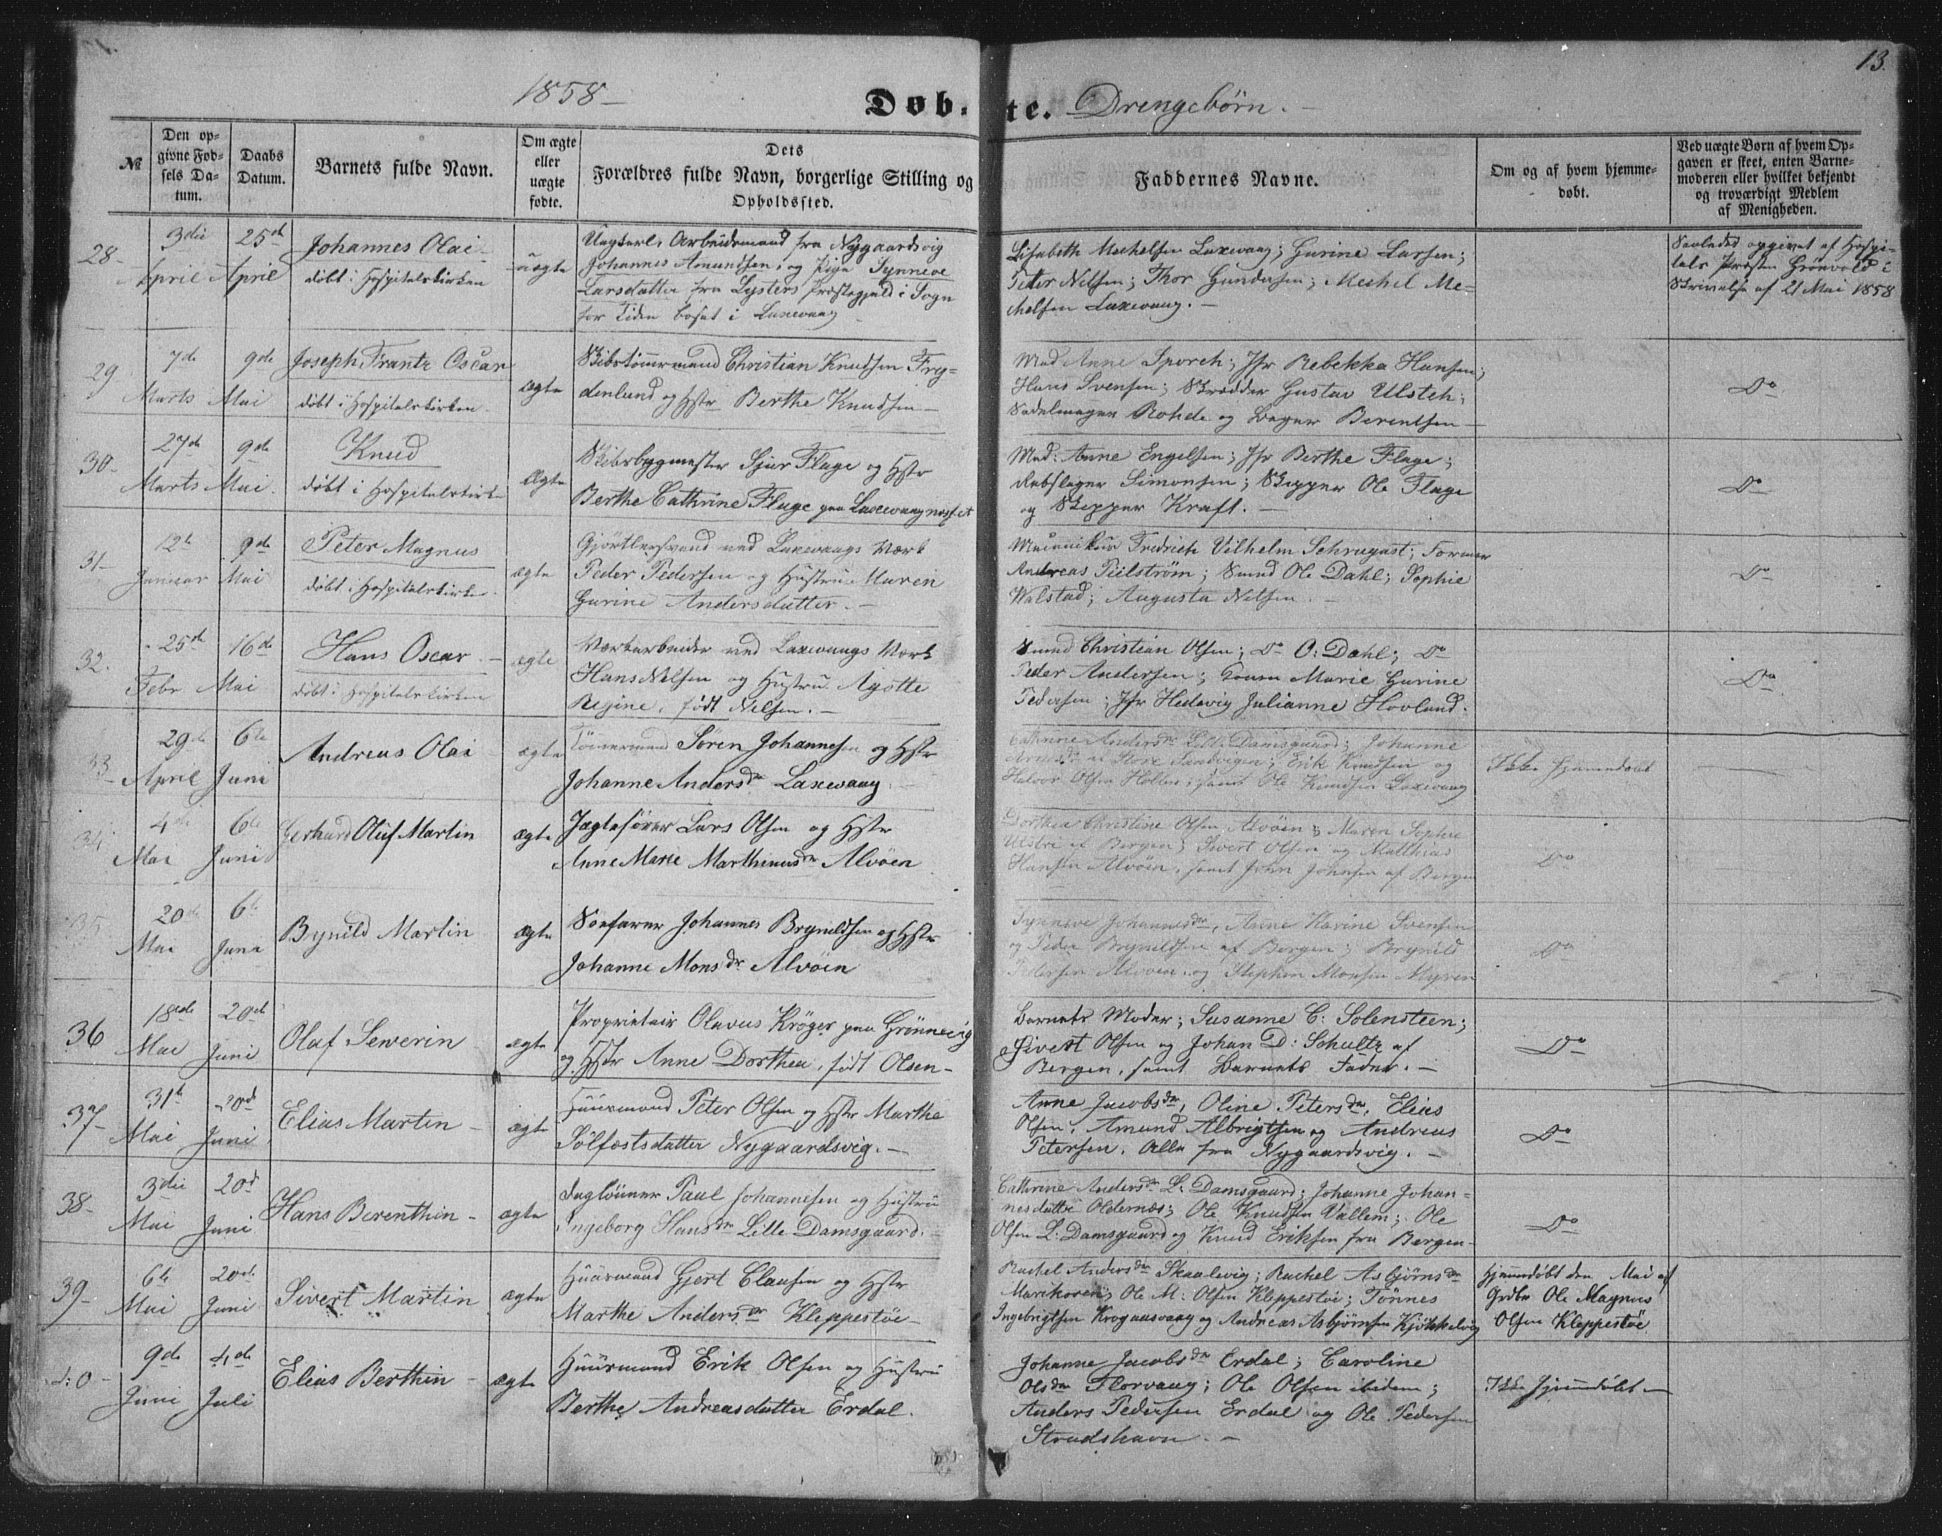 13.
1858 –
Døb- te. Drengebørn. –
№
Den op-
givne Fød-
sels Da-
tum.
Daabs
Datum.
Barnets fulde Navn.
Om ægte
eller
uægte
fødte.
Dets
Forældres fulde Navn, borgerlige Stilling og
Opholdssted.
Faddernes Navne.
Om og af hvem hjemme-
døbt.
Ved uægte Børn af hvem Op-
gaven er skeet, enten Barne-
moderen eller hvilket bekjendt
og troværdigt Medlem
af Menigheden.
28 –
3die
April
25de
April
Johannes Olai
døbt i Hospitalskirken
uægte
Ungkarl Arbeidsmand fra Nygaardsvig
Johannes Amundsen, og Pige Synneve
Larsdatter fra Lysters Præstegjeld i Sogn
for Tiden bosat i Laxevaag
Lisabeth Mechelsen Laxevaag; Gurine Larsen;
Peter Nilsen; Thor Gundersen; Mechel Me-
chelsen Laxevaag. –
Saaledes opgivet af Hospi-
tals Præsten Grönvold i
Skrivelse af 21 Mai 1858
29
7de
Marts
9de
Mai
Joseph Frantz Oscar
døbt i Hospitalskirken.
ægte
Skibstømmermand Christian Knudsen Fry-
denlund og Hstr Berthe Knudsen –
Mad Anne Sporch; Jfr Rebekka Hansen;
Hans Svensen; Skrædder Gustav Ulsteh;
Sadelmager Rohde og Bager Berentsen –
Do
30 –
27de
Marts
9de
Mai.
Knud
døbt i Hospitalskirke
Ægte
Skibsbygmester Sjur Flage og Hstr
Berthe Cathrine Flage paa Laxevaagnesset
Mad: Anne Engelsen; Jfr Berthe Flage;
Rebslager Simonsen; Skipper Ole Flage
og Skipper Kraft. –
Do
31 –
12te
Januar
9de
Mai
Peter Magnus
døbt i Hospitalskirken.
ægte
Gjørtlersvend ved Laxevaags Værk
Peder Pedersen og Hustrue Maren
Gurine Andersdatter. –
Fredrich Vilhelm Schrugast; Former
Andreas Piilström; Smed Ole Dahl; Sophie
Walstad; Augusta Nilsen. –
Do
32.
25de
Febr
16de
Mai
Hans Oscar. –
døbt i Hospitalskirken
ægte
Værkarbeider ved Laxevaags Værk
Hans Nilsen og Hustru Agotte
Regine, født Nilsen. –
Smed Christian Olsen; Do O. Dahl; Do
Peder Andersen; Marie Gurine
Pedersen; Jfr Hedevig Julianne Hovland.
Do
33 –
29de
April
6te
Juni
Andreas Olai
ægte
Tømermand Søren Johannesen og Hstr
Johanne Andersdr Laxevaag. –
Cathrine Andersdr Lille Damsgaard; Johanne
Store Sandvigen; Erik Knudsen og
Halvor Olsen Holten; samt Ole Knudsen Laxevaag
Ikke hjemmedøbt
34
4de
Mai
6te
Juni
Gerhard Oluf Martin
ægte
Jægtefører Lars Olsen og Hstr
Anne Marie Marthinusdr Alvöen
Dorthea Christine Olsen Alvöen; Maren Sophie
Ulstre af Bergen; Sivert Olsen og Matthias
Hansen Alvöen, samt John Johnsen af Bergen
Do
35
20de
Mai
6te
Juni
Bynild Martin
ægte
Søefarer Johannes Brynildsen og Hstr
Johanne Monsdr Alvöen
Synneve Johannesdr, Anne Karine Svensen
og Peder Brynildsen af Bergen; Brynild
Pedersen Alvöen og Stephen Monsen Myren
Do
36
18de
Mai
20de
Juni
Olaf Sewerin –
ægte
Proprietair Olavus Kröger paa Grönnevig
og Hstr Anne Dorthea, født Olsen –
Barnets Moder; Susanne C. Solensteen;
Sivert Olsen og Johan D: Schultz af
Bergen, samt Barnets Fader. –
Do
37 –
31te
Mai
20de
Juni
Elias Martin –
ægte
Huusmand Peter Olsen og Hstr Marthe
Sölfæstsdatter Nygaardsvig. –
Anne Jacobsdr, Oline Petersdr, Elias
Olsen, Amund Albrigtsen og Andreas
Petersen, Alle fra Nygaardsvig. –
Do
38 –
3die
Mai
20de
Juni
Hans Berenthin –
ægte
Daglönner Paul Johannesen og Hustru
Ingeborg Hansdr Lille Damsgaard.
Cathrine Andersdr L. Damsgaard; Johanne Johan-
nesdatter Oldernæs; Ole Knudsen Vallem; Ole
Olsen L. Damsgaard og Knud Eriksen fra Bergen –
Do
39 –
6te
Mai
20de
Juni
Sivert Martin
ægte
Huusmand Gjert Clausen og Hstr
Marthe Andersdr Kleppestöe –
Rachel Andersdr Skaalevig; Rachel Asbjörnsdr
Marikoven; Ole M. Olsen Kleppestöe; Tönnes
Ingebrigtsen Krogaasvaag og Andreas Asbjörnsen Kjökkelvig
Hjemmedøbt den Mai af
Ole Magnus
Olsen Kleppestöe
40 –
9de
Juni
4de
Juli
Elias Berthin –
ægte
Huusmand Erik Olsen og Hustru
Berthe Andreasdatter Erdal.
Johanne Jacobsdr Erdal; Caroline
Olsdr Florvaag; Ole Olsen ibidem;
Anders Pedersen Erdal og Ole Pedersen
Strudshavn. –
Ikke hjemmedøbt –